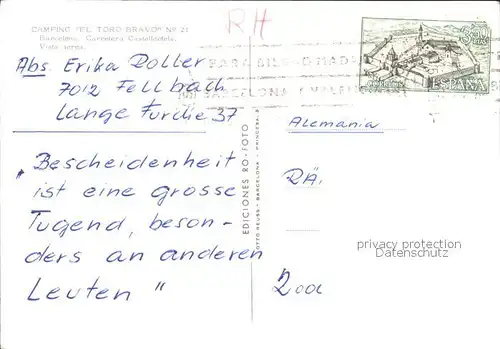 CAMPING "EL TORO BRAVO" Nº 21
Barcelona. Carretera Casteldefels.
Vista aerea.
RH
Abs. Erika Roller
7012 Fellbach
Lange Furche 37
"Bescheidenheit
ist eine grosse
Tugend, beson-
ders an anderen
Leuten"
EDICIONES RO-FOTO
BARCELONA
ESPAÑA
Alemania
RÄ.
privacy protection
Datenschutz